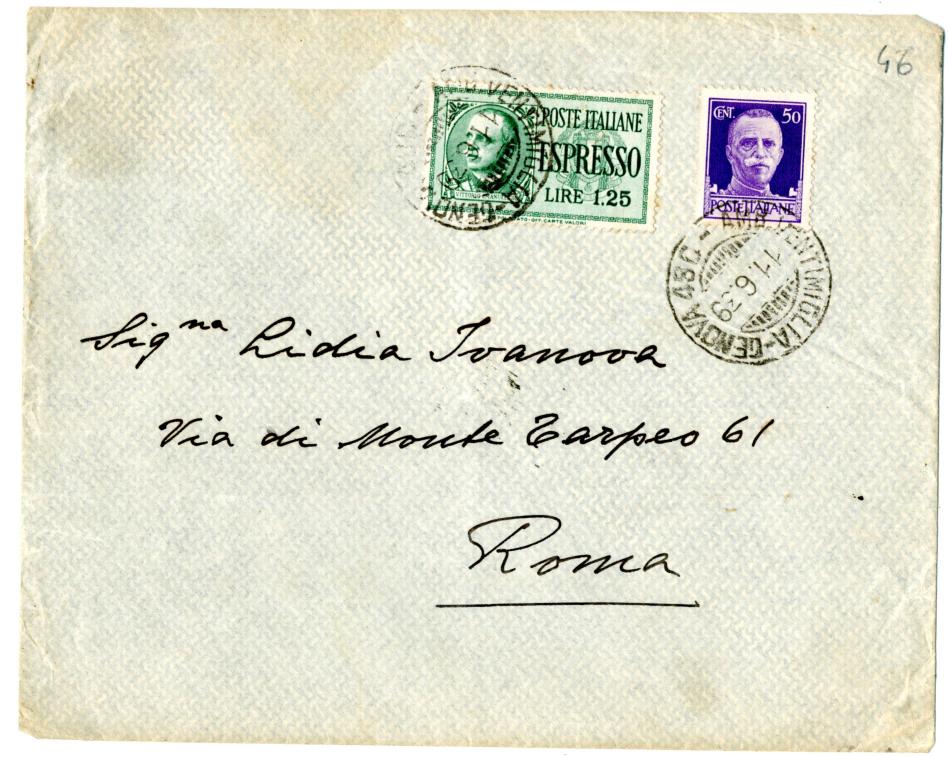 46
POSTE ITALIANE
ESPRESSO
LIRE 1.25
CENT. 50
POSTE ITALIANE
AMB. VENTIMIGLIA-GENOVA 48 C -
11.6.39
Sigⁿᵃ Lidia Ivanova
Via di Monte Tarpeo 61
Roma